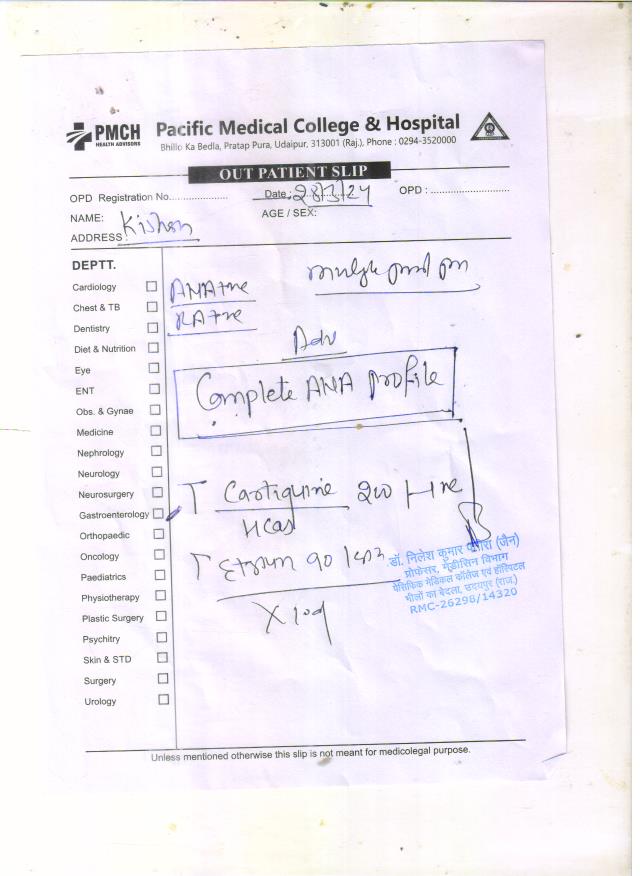 PMCH
HEALTH ADVISORS
Pacific Medical College & Hospital
Bhillo Ka Bedla, Pratap Pura, Udaipur, 313001 (Raj.), Phone : 0294-3520000
OUT PATIENT SLIP
OPD Registration No................... Date : 28/3/24 OPD : ....................
NAME: Kishan AGE / SEX:
ADDRESS :
DEPTT.
Cardiology
Chest & TB
Dentistry
Diet & Nutrition
Eye
ENT
Obs. & Gynae
Medicine
Nephrology
Neurology
Neurosurgery
Gastroenterology
Orthopaedic
Oncology
Paediatrics
Physiotherapy
Plastic Surgery
Psychitry
Skin & STD
Surgery
Urology
ANA +ve
RA +ve
Adv
Complete ANA Profile
T Cartiquine 200
HCQs
T 90
X 10d
डॉ. निलेश कुमार (जैन)
प्रोफेसर, मेडीसिन विभाग
पेसिफिक मेडिकल कॉलेज एवं हॉस्पिटल
भीलों का बेदला, उदयपुर (राज.)
RMC-26298/14320
Unless mentioned otherwise this slip is not meant for medicolegal purpose.